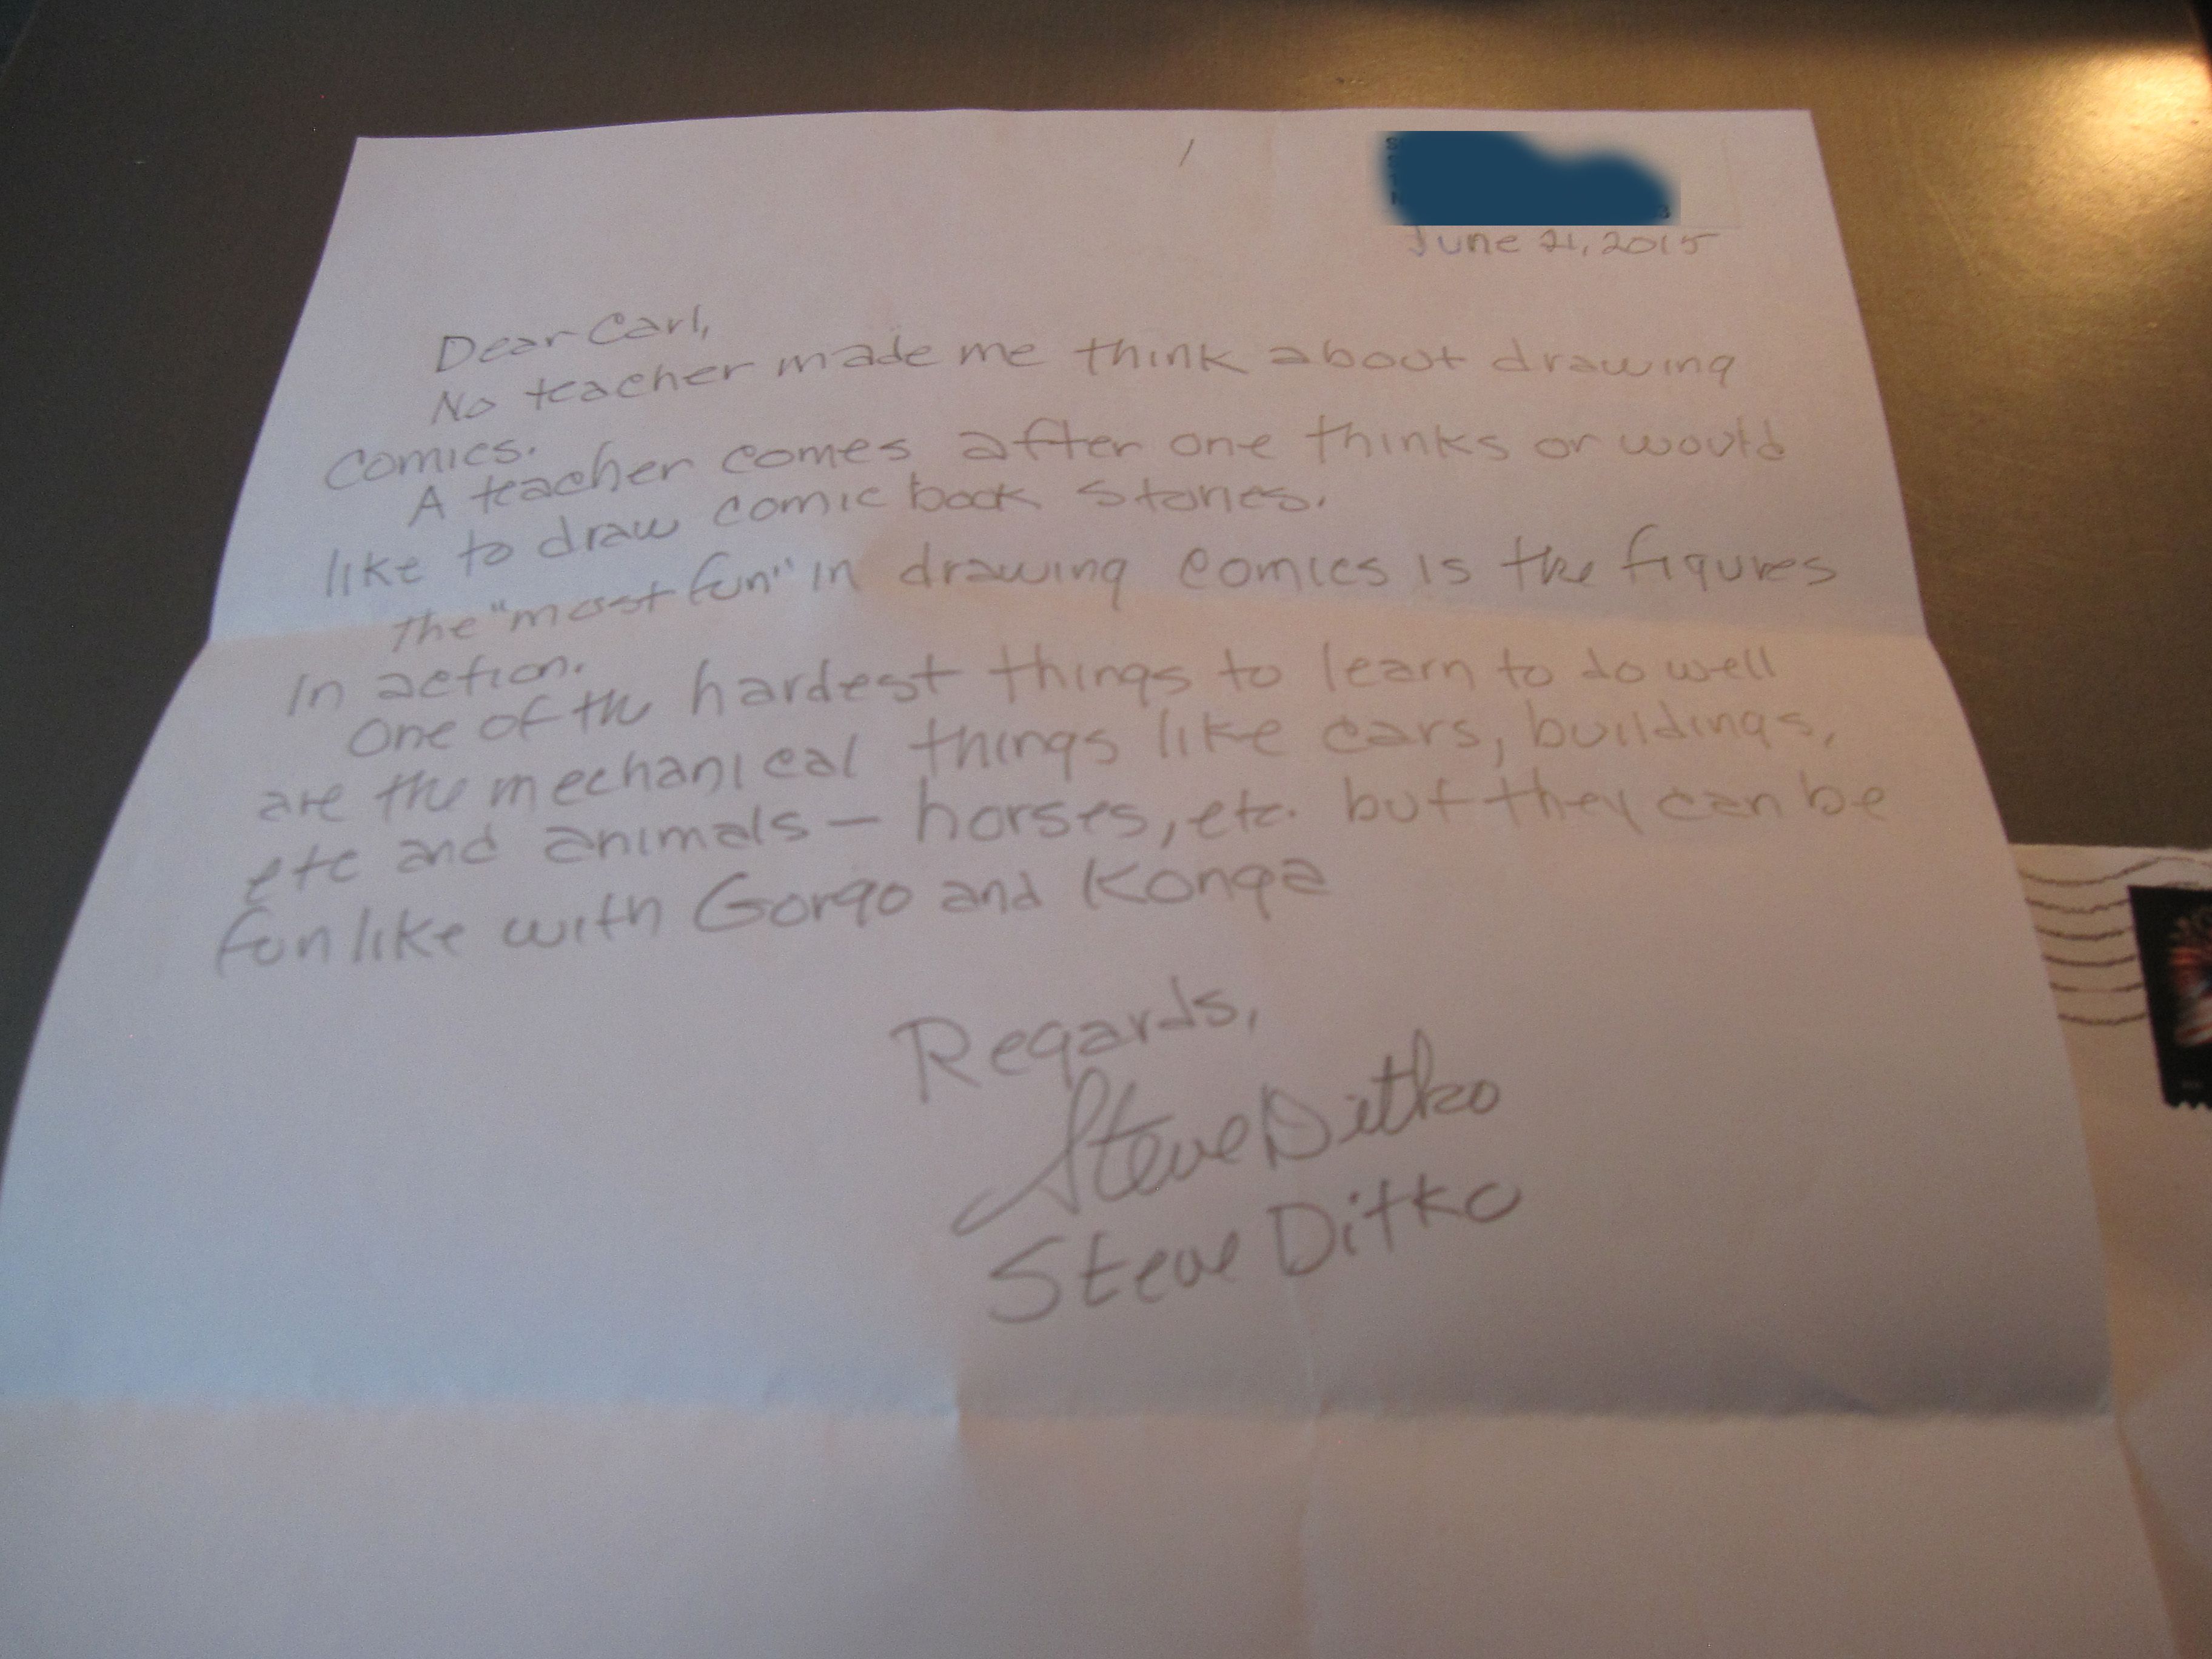 June 21, 2015
Dear Carl,
No teacher made me think about drawing
comics.
A teacher comes after one thinks or would
like to draw comic book stories.
The "most fun" in drawing comics is the figures
in action.
One of the hardest things to learn to do well
are the mechanical things like cars, buildings,
etc and animals — horses, etc. but they can be
fun like with Gorgo and Konga
Regards,
Steve Ditko
Steve Ditko